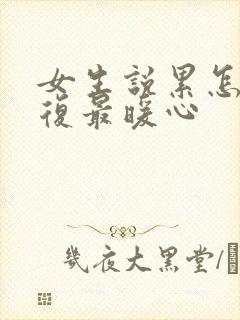 女生說累怎
復最暖心
幾夜大黑堂/